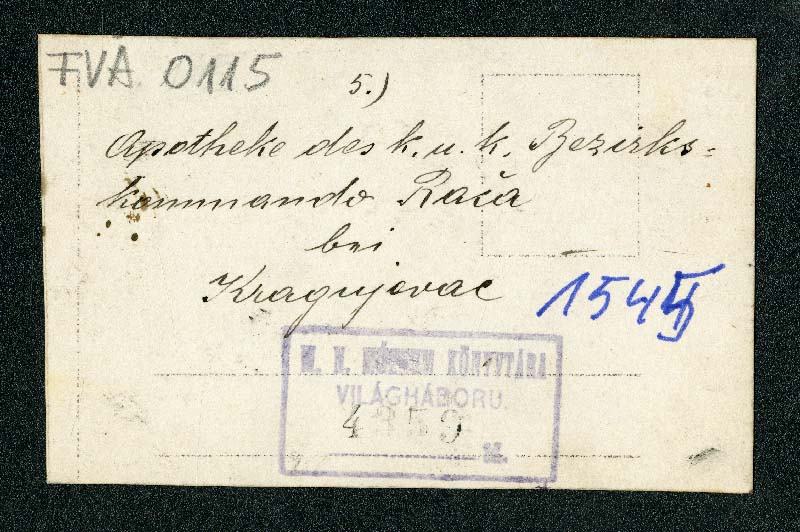 FVA 0115
5.)
Apotheke des k. u. k. Bezirks=
kommando Rača
bei
Kragujevac
M. N. MÚZEUM KÖNYVTÁRA
VILÁGHÁBORU
4359
sz.